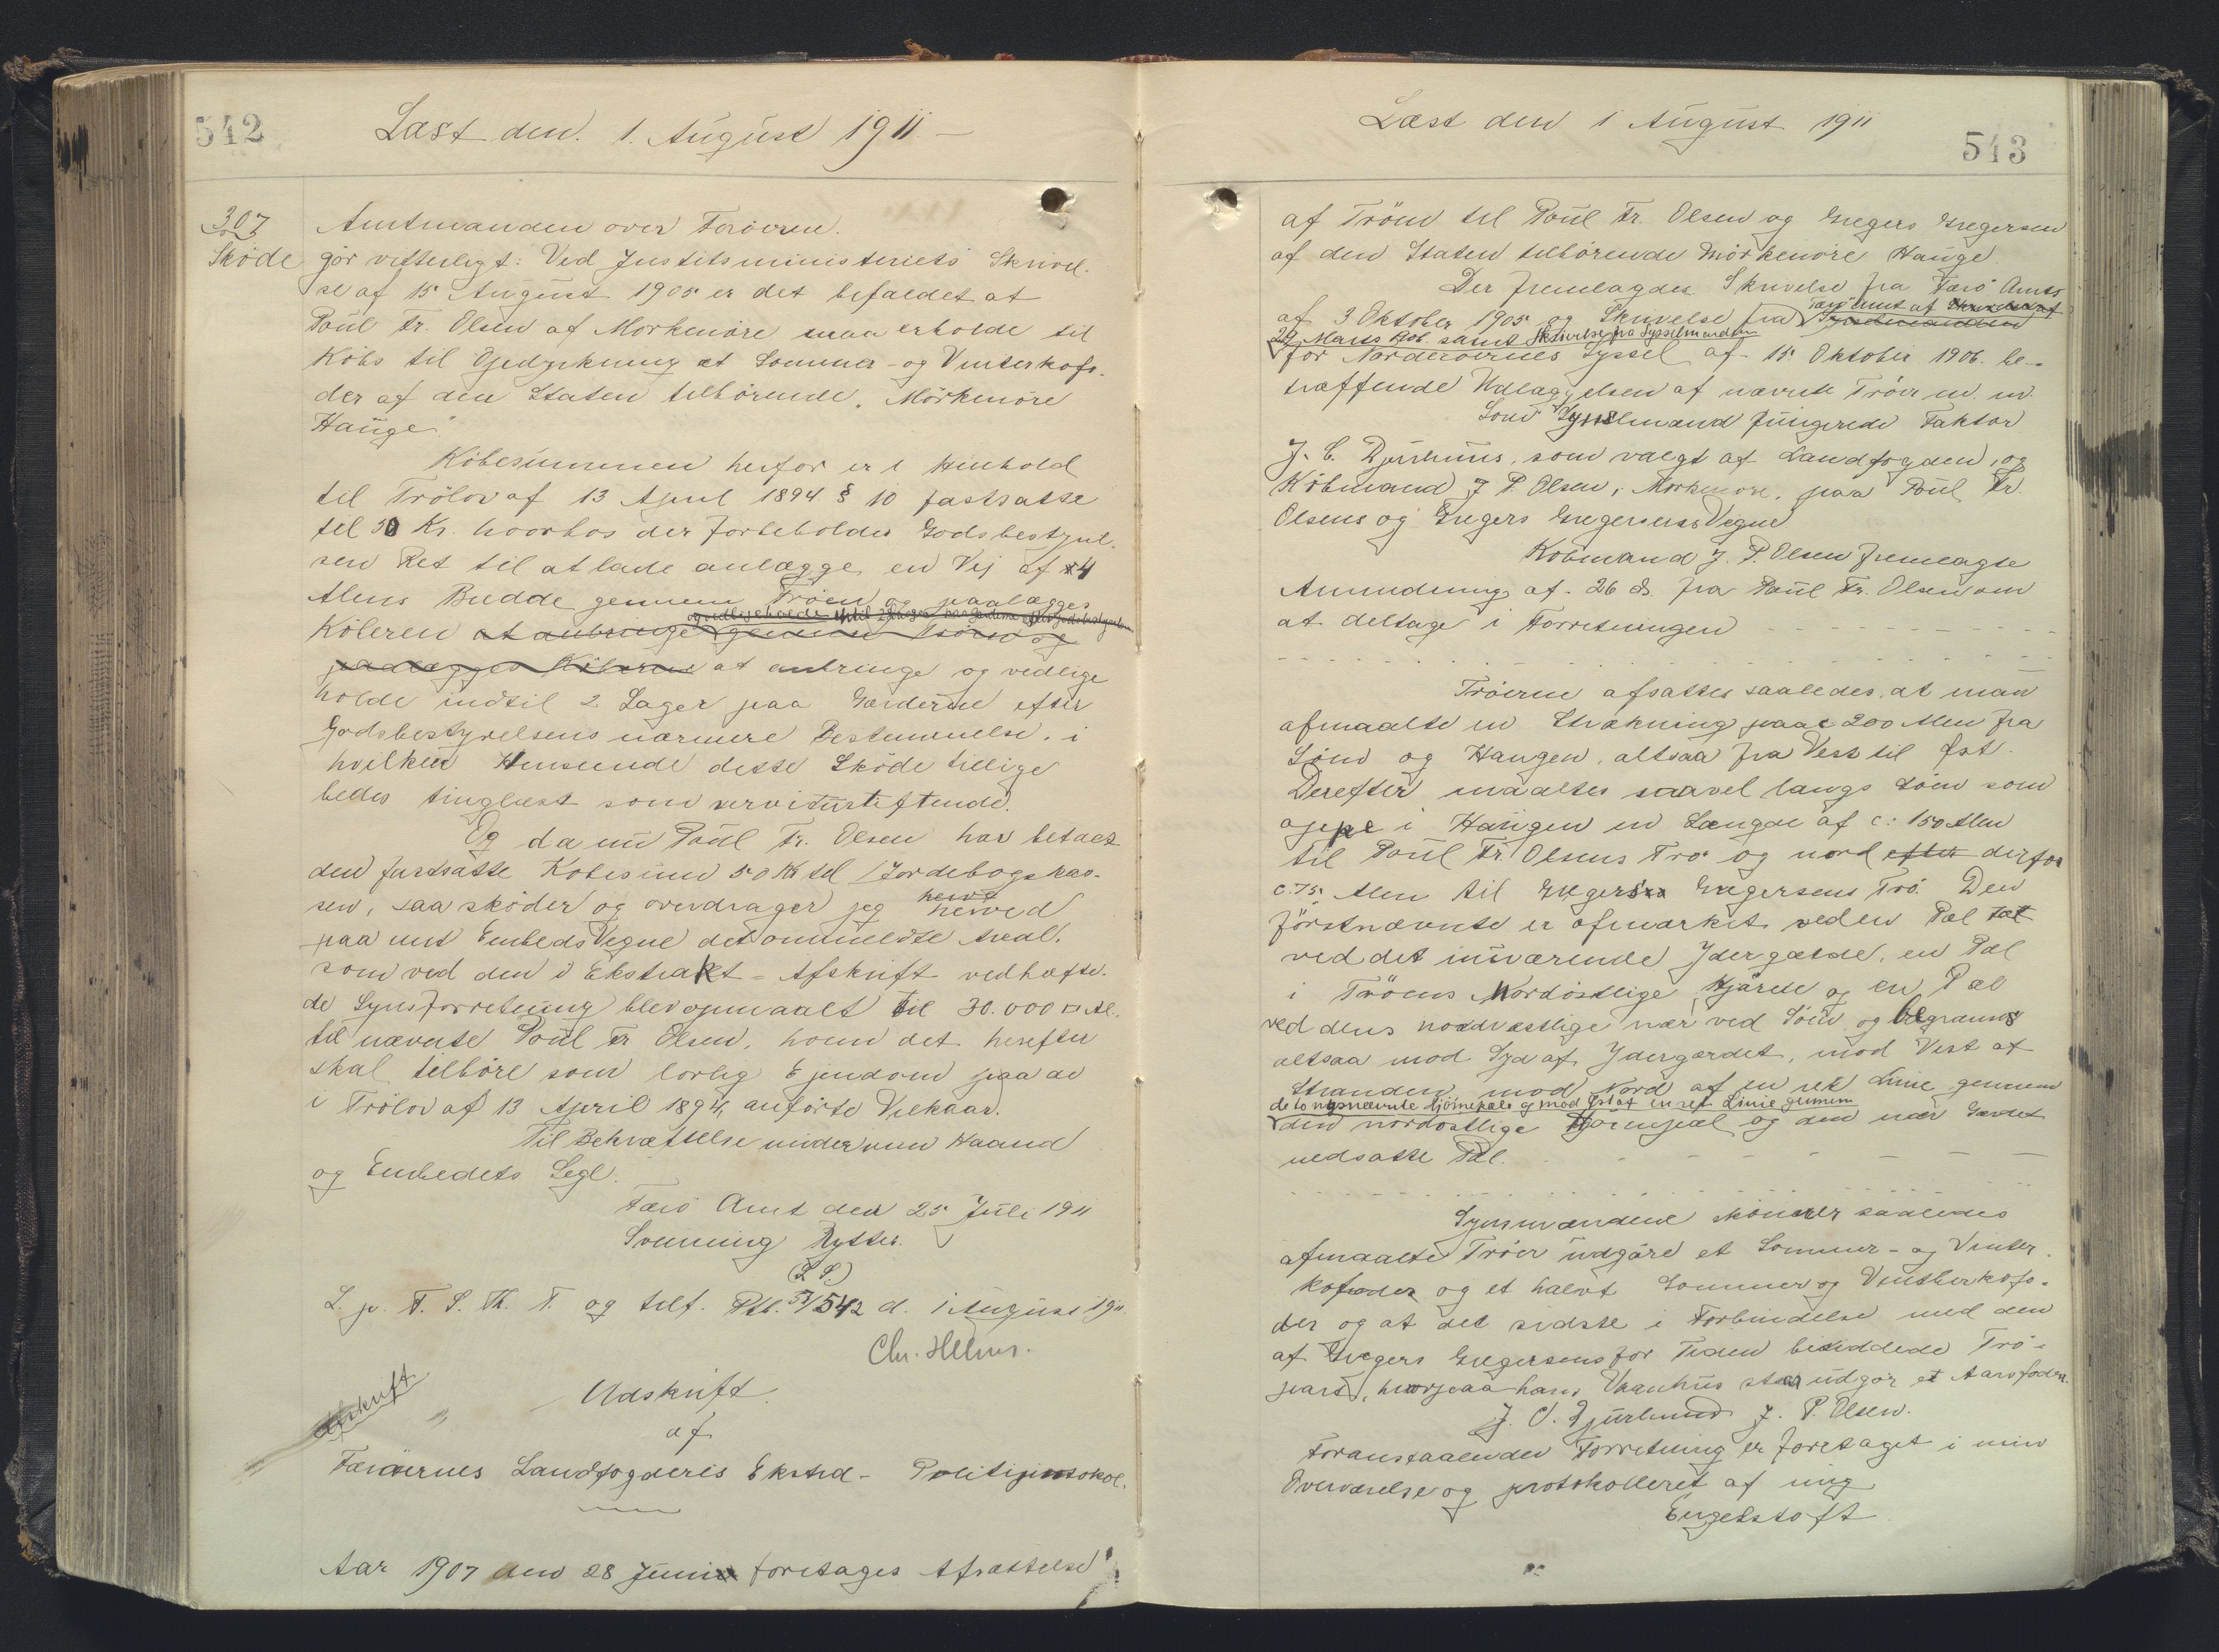 542
Læst den. 1. August 1911 –
307
Skøde
Amtmanden over Færøerne.
gör vitterligt: Ved Justitsministeriets Skrivel-
se af 15 August 1905 er det befaldet at
Poul Fr. Olsen af Morkenöre maa erholde til
Köbs til Opdyrkning et Sommer- og Vinterkofo-
der af den Staten tilhörende "Mörkenöre
Hauge"
Köbesummen herfor er i Henhold
til Trölov af 13 April 1894 § 10 fastsatte
til 50 Kr. hvorhos der forbeholdes Godsbestyrel-
sen Ret til at lade anlægge en Vej af 4
Alens Bredde gennem Tröen og paalægges
og vedligeholde indtil 2 Lager paa Gærderne efter Godsbestyrelsen
Köberen at anbringe gennem Tröen og
paalægges Köberen at anbringe og vedlige
holde indtil 2 Lager paa Gærderne efter
Godsbestyrelsens nærmere Bestemmelse, i
hvilken Henseende dette Sköde tillige
bedes tinglæst som servitutstiftende.
Og da nu Poul Fr. Olsen har betalt
den fastsatte Købesum 50 Kr til Jordebogskas-
sen, saa skøder og overdrager jeg herved
paa mit Embeds Vegne det ommeldte Areal,
som ved den i Ekstrakt-Afskrift vedhæfte-
de Synsforretning blev opmaalt til 30.000 □ Al.
til nævnte Poul Fr Olsen, hvem det herefter
skal tilhöre som lovlig Ejendom paa de
i Trölov af 13 April 1894 anförte Vilkaar.
Til Bekræftelse under min Haand
og Embedets Segl.
Færö Amt den 25 Juli 1911
Svenning Rytter.
(L S.)
L. p. F. S. Th. T. og tilf. Ptk. 542 d. 1 August 1911.
Afskrift
Udskrift
af
Færøernes Landfogderis Ekstra- Politiprotokol.
Aar 1907 den 28 Juni foretages Afsættelse
Læst den 1 August 1911
543
af Tröen til Poul Fr. Olsen og Gregers Gregersen
af den Staten tilhörende Mörkenöre Hauge.
Der fremlagdes Skrivelse fra Færö Amt
af 3 Oktober 1905 og Skrivelse fra Færö Amt af
29 Marts 1906 samt Skrivelse fra Sysselmanden
for Norderöernes Syssel af 15 Oktober 1906. be-
træffende Udlæggelsen af nævnte Tröer m. m.
Som Synsmænd fungerede Faktor
J. C. Djurhuus, som valgt af Landfogden, og
Köbmand J. P. Olsen, Morkenöre, paa Poul Fr.
Olsens og Gregers Gregersens Vegne
Købmand J. P. Olsen fremlagde
Anmodning af 26 ds. fra Poul Fr. Olsen om
at deltage i Forretningen
Tröerne afsattes saaledes, at man
afmaalte en Strækning paa c 200 Alen fra
Söen og Haugen, altsaa fra Vest til Øst.
Derefter maaltes saavel langs Söen som
oppe i Haugen en Længde af c: 150 Alen
til Poul Fr. Olsens Trö og nord efter derfor
c. 75 Alen til Gregers Gregersens Trö. Den
förstnævnte er afmærket ved en Pæl tæt
ved det nuværende Ydergærde, en Pæl
i Tröens Nordöstlige Hjörne og en Pæl
ved dens nordvestlige nær ved Söen og begrænses
altsaa mod Syd af Ydergærdet, mod Vest af
Stranden, mod Nord af en ret Linie gennem
de to nysnævnte Hjörnepæle og mod Øst af en ret Linie gennem
den nordostlige Hjörnepæl og den nær Gærdet
nedsatte Pæl.
Synsmændene skönner saaledes
afmaalte Tröer udgöre et Sommer- og Vinter-
kofoder og et halvt Sommer og Vinterkofo-
der og at det sidste i Forbindelse med den
af Gregers Gregersens for Tiden besiddede Trö-
part, hvorpaa hans Vaanhus staar udgör et Aarsfoder.
J. C. Djurhuus J. P. Olsen.
Foranstaaende Forretning er foretaget i min
Overværelse og protokolleret af mig
Engelstoft